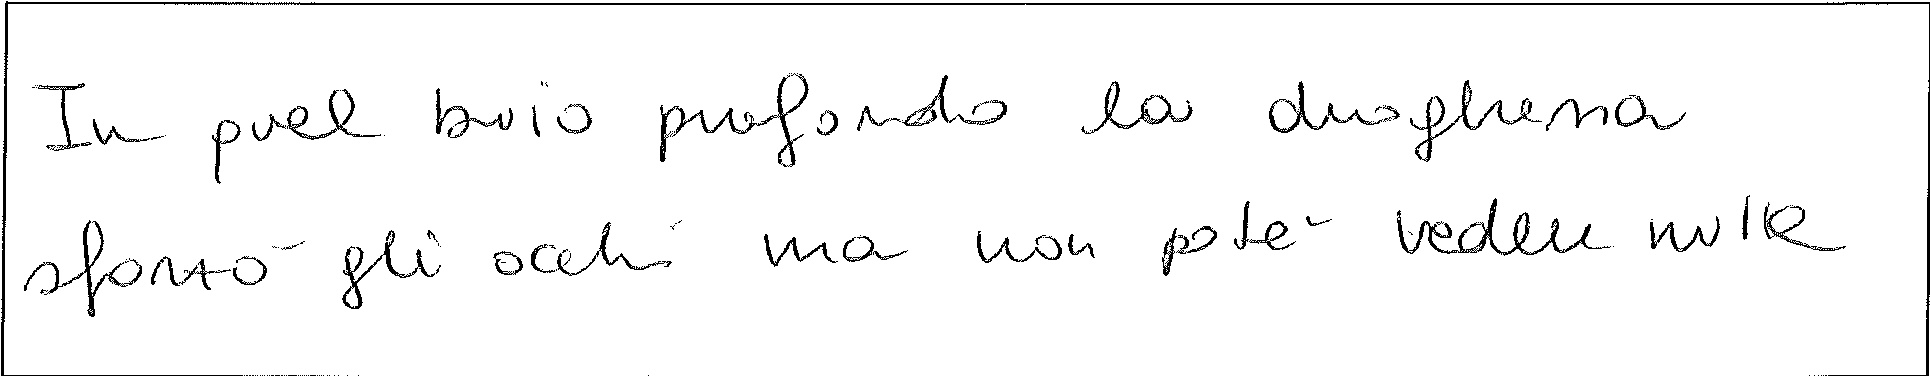 In quel buio profondo la droghessa
sforzò gli occhi ma non poté vedere nulla